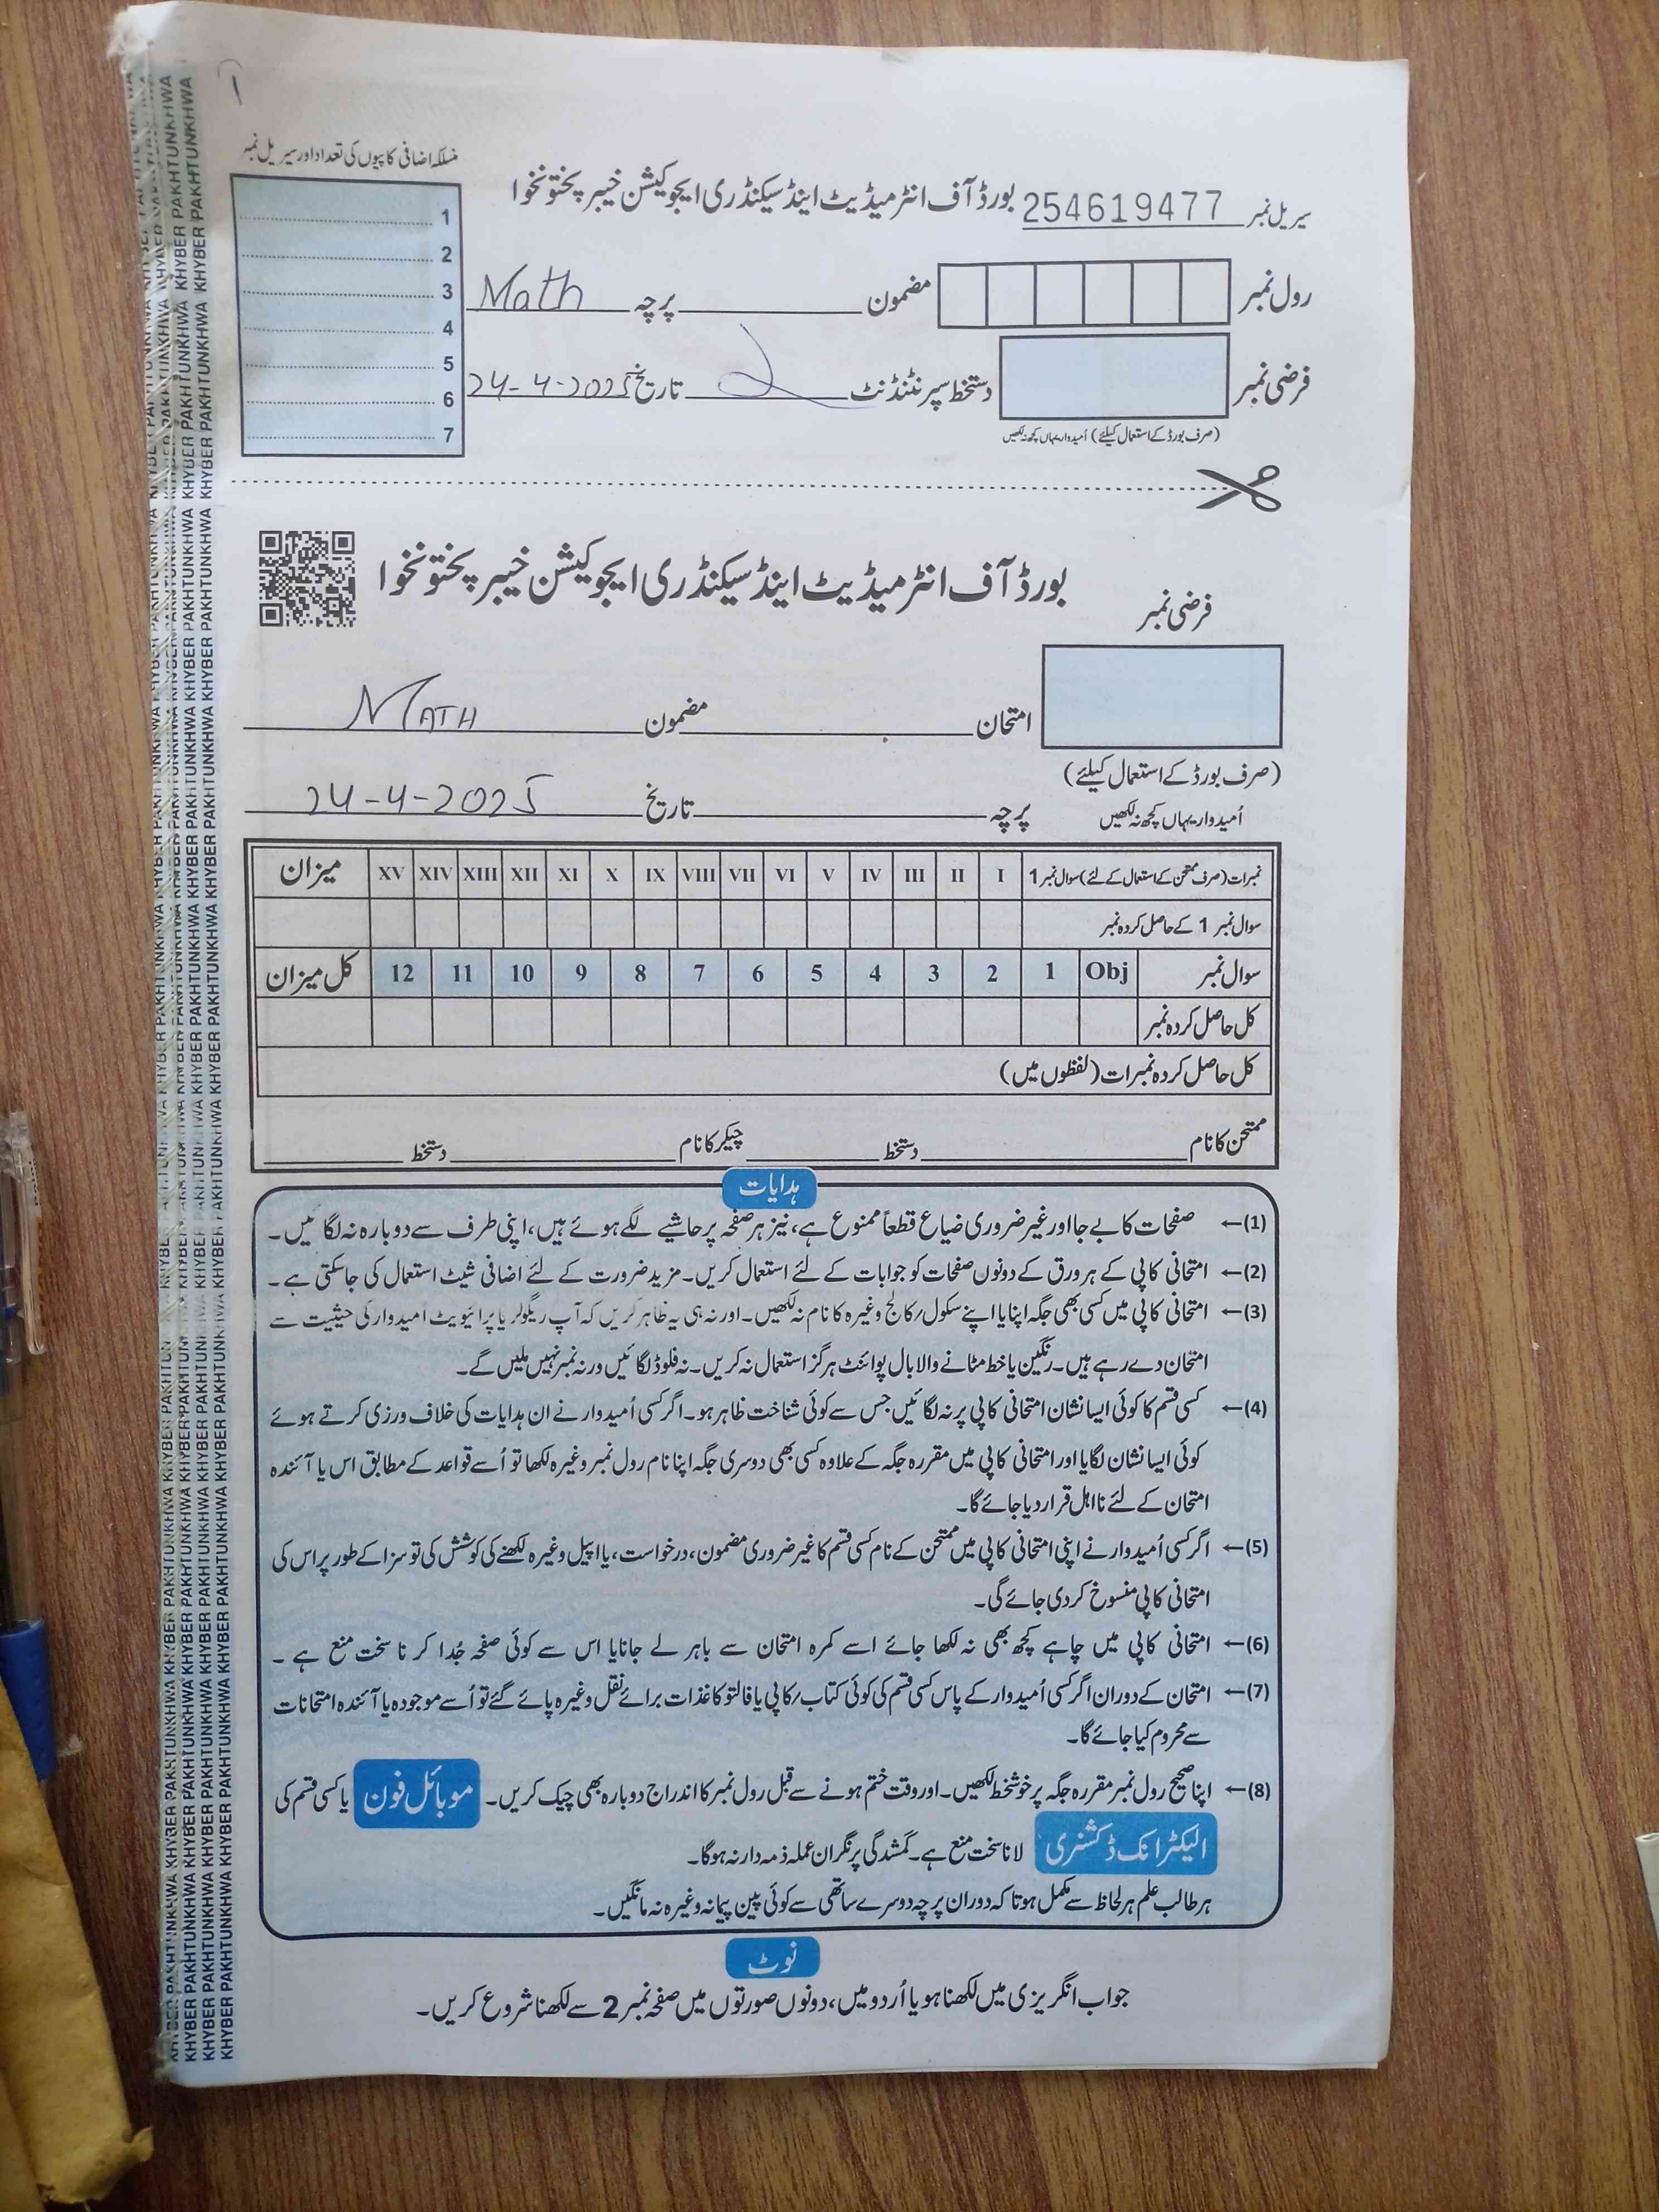 منسلکہ اضافی کاپیوں کی تعداد اور سیریل نمبر
1
2
3
4
5
6
7
سیریل نمبر 254619477 بورڈ آف انٹرمیڈیٹ اینڈ سیکنڈری ایجوکیشن خیبر پختونخوا
رول نمبر مضمون پرچہ Math
فرضی نمبر دستخط سپرنٹنڈنٹ تاریخ 24-4-2025
(صرف بورڈ کے استعمال کیلئے) اُمیدوار یہاں کچھ نہ لکھیں
بورڈ آف انٹرمیڈیٹ اینڈ سیکنڈری ایجوکیشن خیبر پختونخوا
فرضی نمبر
امتحان مضمون MATH
(صرف بورڈ کے استعمال کیلئے)
اُمیدوار یہاں کچھ نہ لکھیں
پرچہ تاریخ 24-4-2025
نمبرات (صرف ممتحن کے استعمال کے لئے) سوال نمبر 1 I II III IV V VI VII VIII IX X XI XII XIII XIV XV میزان
سوال نمبر 1 کے حاصل کردہ نمبر
سوال نمبر Obj 1 2 3 4 5 6 7 8 9 10 11 12 کل میزان
کل حاصل کردہ نمبر
کل حاصل کردہ نمبرات (لفظوں میں)
ممتحن کا نام دستخط چیکر کا نام دستخط
ہدایات
(1)← صفحات کا بے جا اور غیر ضروری ضیاع قطعاً ممنوع ہے، نیز ہر صفحہ پر حاشیے لگے ہوئے ہیں، اپنی طرف سے دوبارہ نہ لگائیں۔
(2)← امتحانی کاپی کے ہر ورق کے دونوں صفحات کو جوابات کے لئے استعمال کریں۔ مزید ضرورت کے لئے اضافی شیٹ استعمال کی جاسکتی ہے۔
(3)← امتحانی کاپی میں کسی بھی جگہ اپنا یا اپنے سکول/کالج وغیرہ کا نام نہ لکھیں۔ اور نہ ہی یہ ظاہر کریں کہ آپ ریگولر یا پرائیویٹ امیدوار کی حیثیت سے
امتحان دے رہے ہیں۔ رنگین یا خط مٹانے والا بال پوائنٹ ہرگز استعمال نہ کریں۔ نہ فلوڈ لگائیں ورنہ نمبر نہیں ملیں گے۔
(4)← کسی قسم کا کوئی ایسا نشان امتحانی کاپی پر نہ لگائیں جس سے کوئی شناخت ظاہر ہو۔ اگر کسی اُمیدوار نے ان ہدایات کی خلاف ورزی کرتے ہوئے
کوئی ایسا نشان لگایا اور امتحانی کاپی میں مقررہ جگہ کے علاوہ کسی بھی دوسری جگہ اپنا نام رول نمبر وغیرہ لکھا تو اُسے قواعد کے مطابق اس یا آئندہ
امتحان کے لئے نااہل قرار دیا جائے گا۔
(5)← اگر کسی اُمیدوار نے اپنی امتحانی کاپی میں ممتحن کے نام کسی قسم کا غیر ضروری مضمون، درخواست، یا اپیل وغیرہ لکھنے کی کوشش کی تو سزا کے طور پر اس کی
امتحانی کاپی منسوخ کر دی جائے گی۔
(6)← امتحانی کاپی میں چاہے کچھ بھی نہ لکھا جائے اسے کمرہ امتحان سے باہر لے جانا یا اس سے کوئی صفحہ جُدا کرنا سخت منع ہے۔
(7)← امتحان کے دوران اگر کسی اُمیدوار کے پاس کسی قسم کی کوئی کتاب/کاپی یا فالتو کاغذات برائے نقل وغیرہ پائے گئے تو اُسے موجودہ یا آئندہ امتحانات
سے محروم کیا جائے گا۔
(8)← اپنا صحیح رول نمبر مقررہ جگہ پر خوشخط لکھیں۔ اور وقت ختم ہونے سے قبل رول نمبر کا اندراج دوبارہ بھی چیک کریں۔ موبائل فون یا کسی قسم کی
الیکٹرانک ڈکشنری لانا سخت منع ہے۔ گمشدگی پر نگران عملہ ذمہ دار نہ ہوگا۔
ہر طالب علم ہر لحاظ سے مکمل ہو تاکہ دوران پرچہ دوسرے ساتھی سے کوئی پین پیمانہ وغیرہ نہ مانگیں۔
نوٹ
جواب انگریزی میں لکھنا ہو یا اُردو میں، دونوں صورتوں میں صفحہ نمبر 2 سے لکھنا شروع کریں۔
KHYBER PAKHTUNKHWA KHYBER PAKHTUNKHWA KHYBER PAKHTUNKHWA